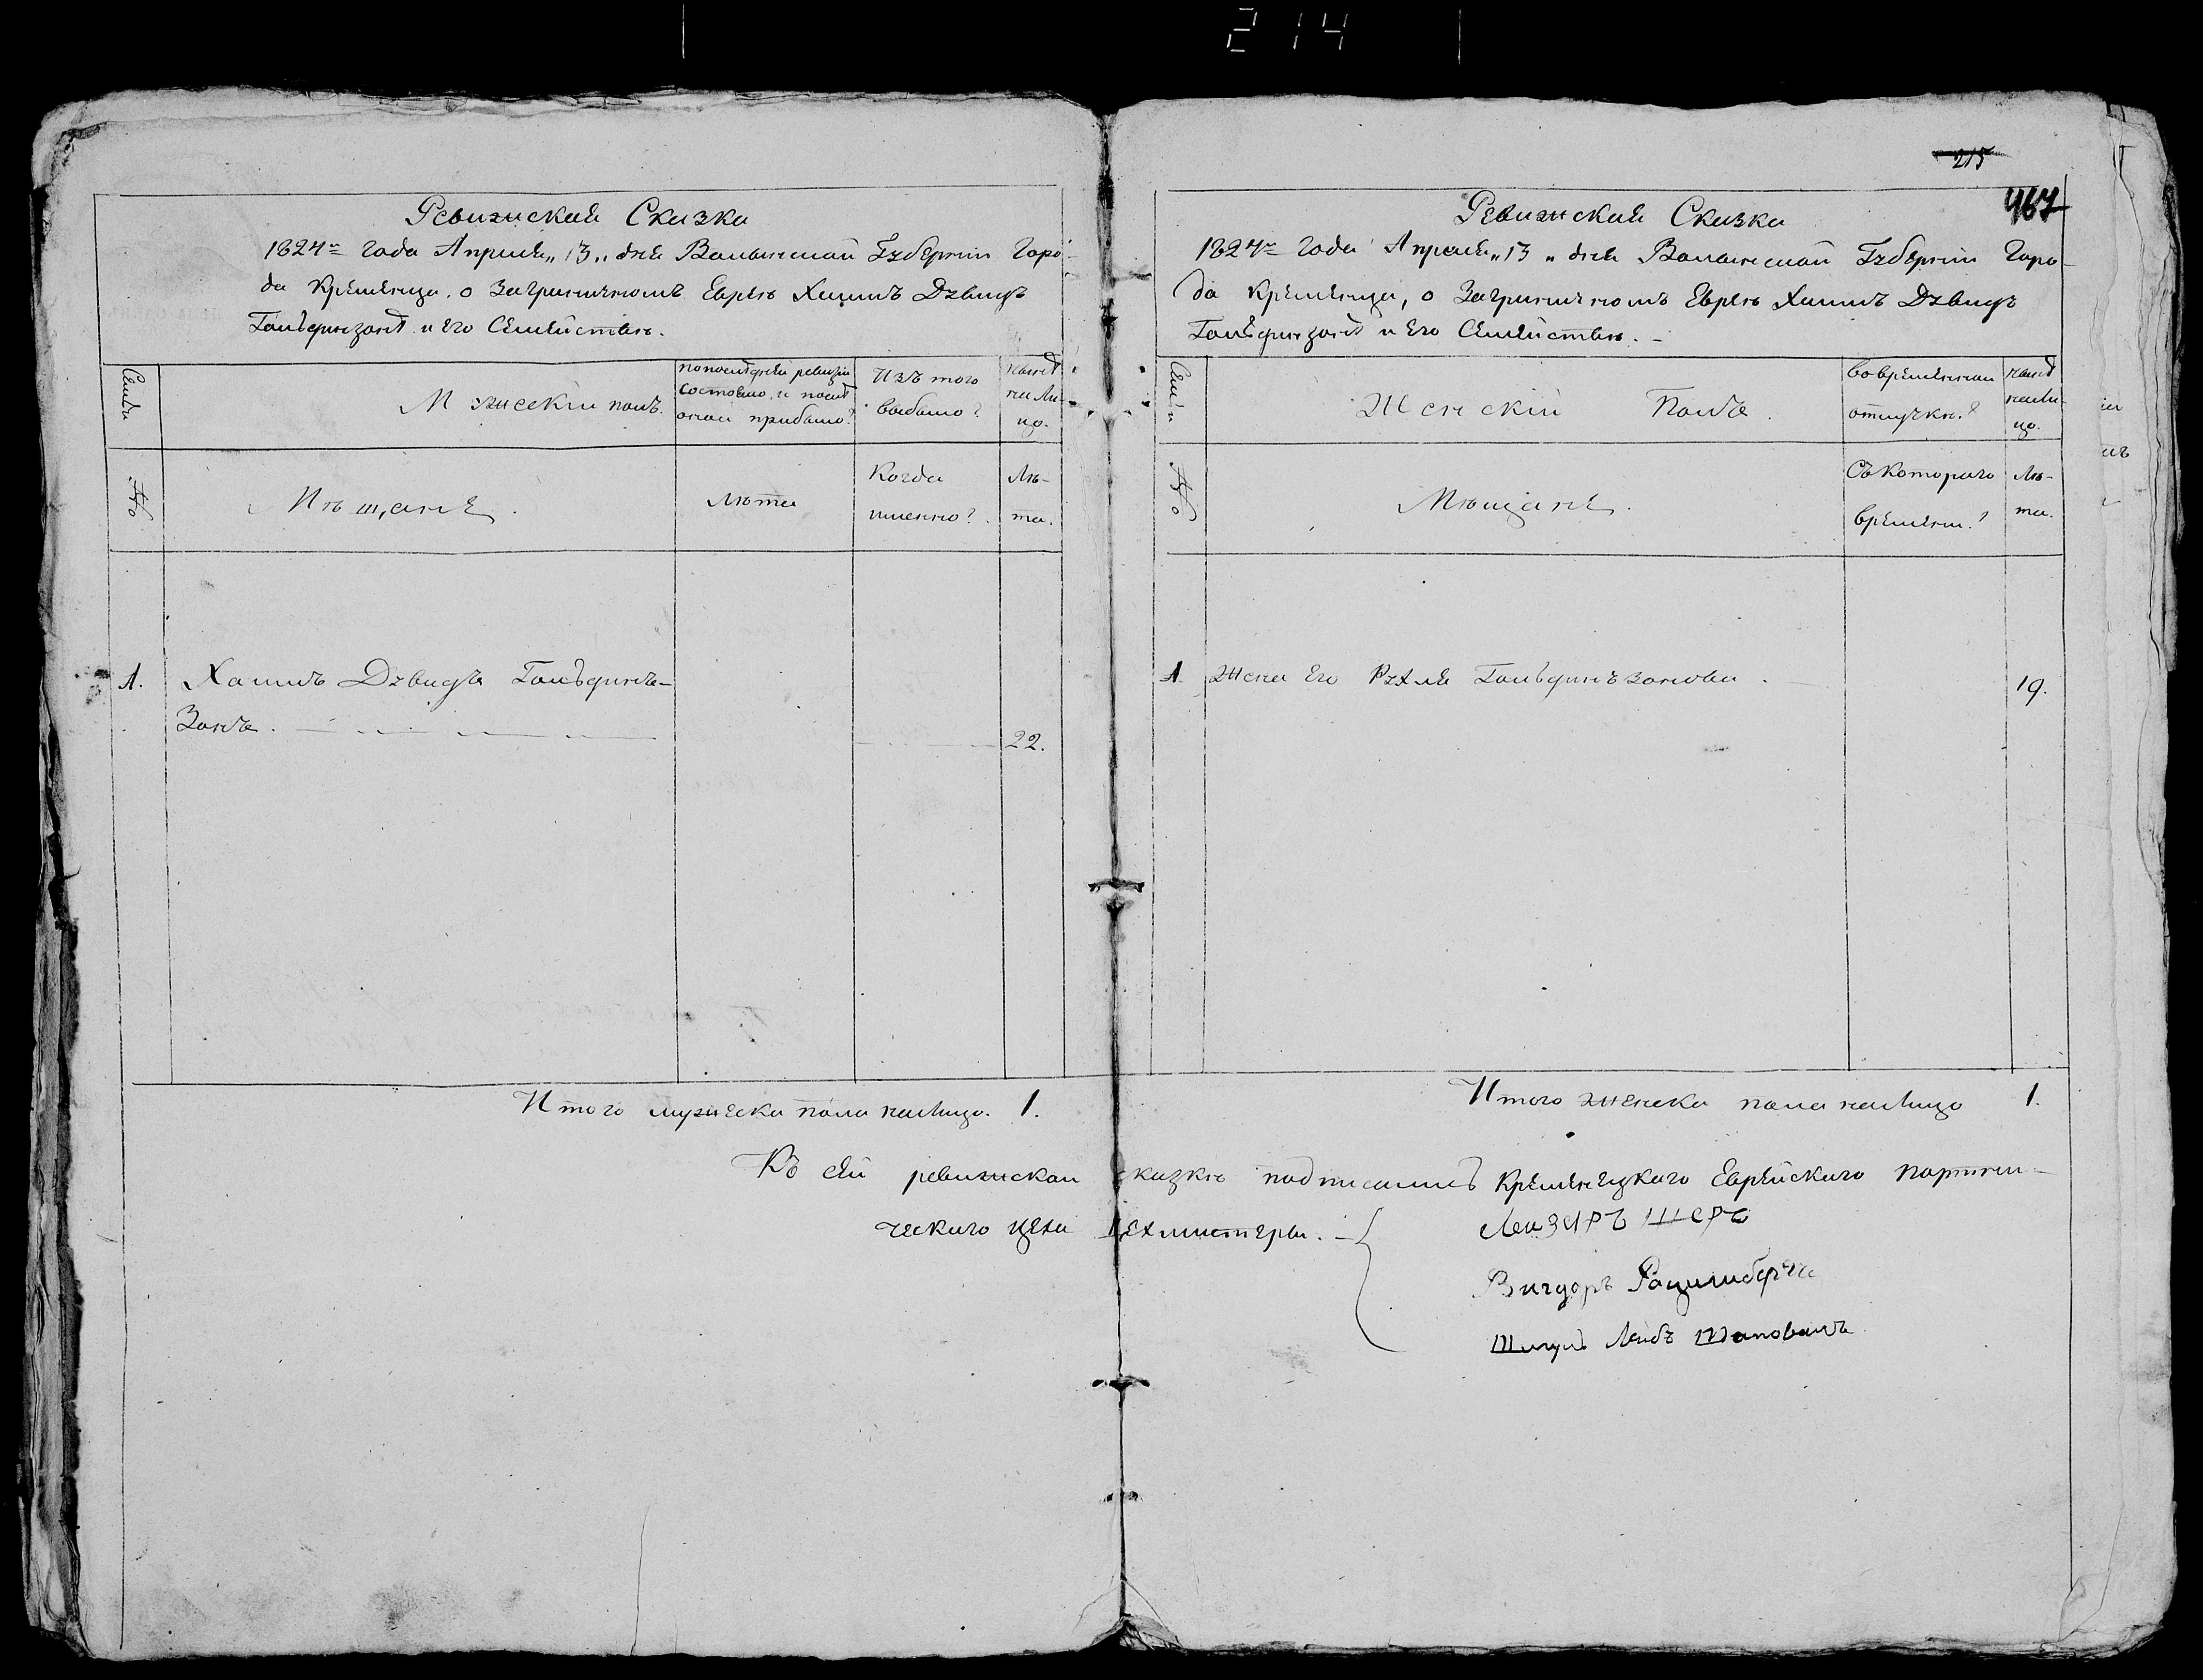 214
Ревизская Сказка
1824го года Апреля „13„ дня Волынской Губернiи Горо-
да Кременца, о Заграничномъ Евреѣ Хаимъ Дувидъ
Гольдинзонѣ и его Семействѣ.
Семьи
Мужескiй полъ.
По последней ревизiи
состояло, и после
оной прибыло?
Изъ того
выбыло?
Ныне
на Ли-
цо.
№
Мѣщане.
Лѣта
Когда
именно?
Лѣ-
та.
1. Хаимъ Дувидъ Гольдинъ-
Зонъ. 22.
Итого мужеска пола налицо. 1.
215
467
Ревизская Сказка
1824го Года Апреля „13„ дня Волынской Губернiи Горо-
да Кременца, о Заграничномъ Евреѣ Хаимъ Дувидъ
Гольдинзонѣ и Его Семействѣ.
Семьи
Женскiй Полъ.
Во временной
отлучке?
Ныне
нали-
цо.
№
Мѣщане.
Съ Котораго
времени?
Лѣ-
та.
1 Жена Его Рухля Гольдинъзонова. 19.
Итого женска пола налицо 1.
Къ сей ревизской сказкѣ подписались Кременецкаго Еврейскаго портни-
ческаго цеха Цехмистеры.
Лейзеръ Шеръ
Вигдоръ
Лейбъ